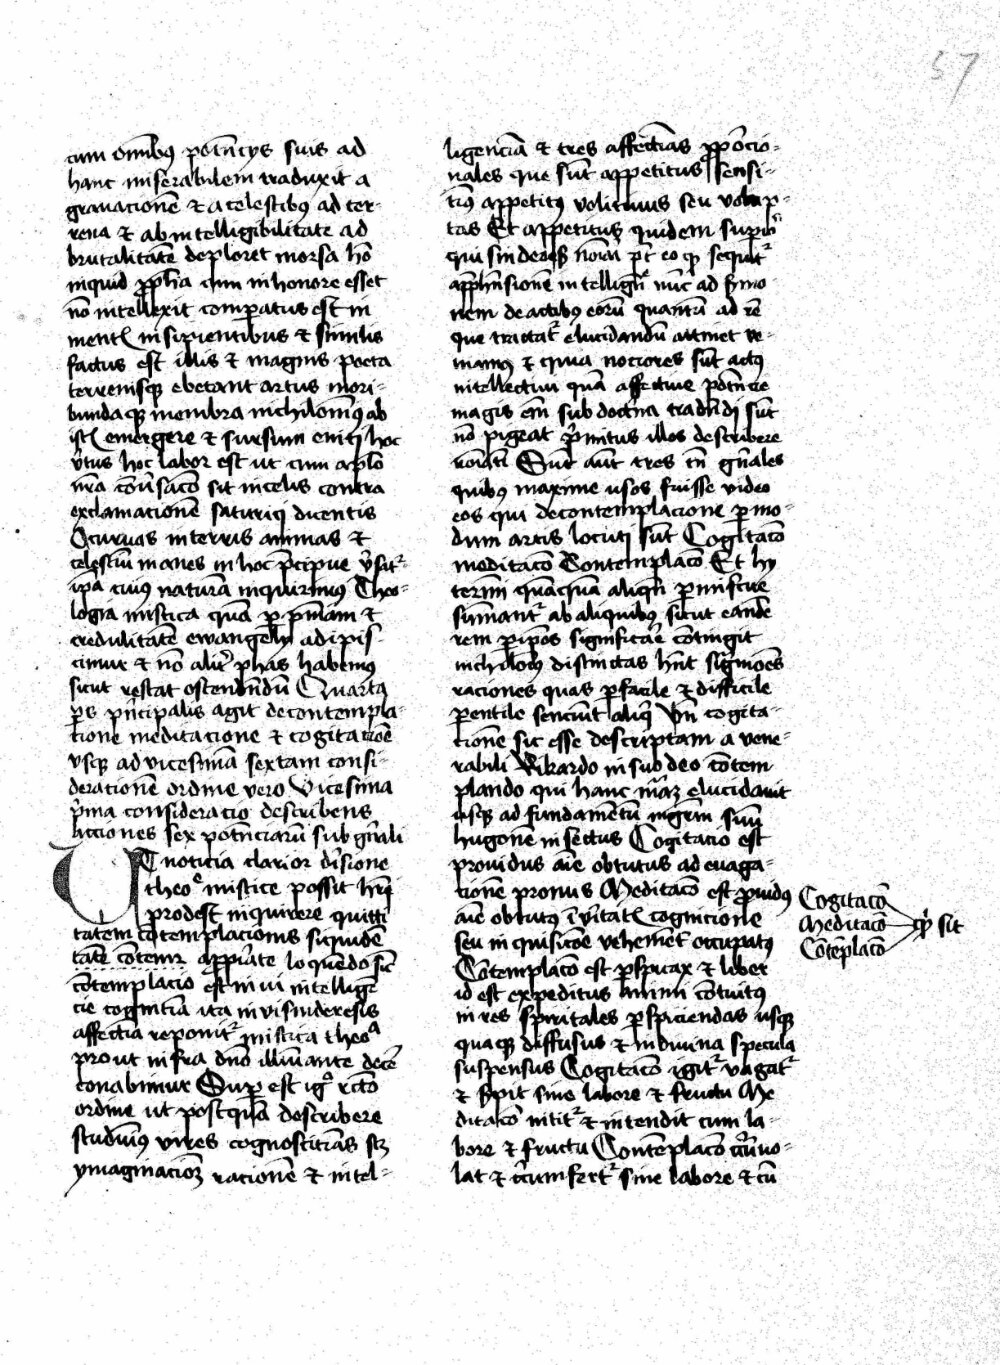 57
cum om̅ibꝰ pot̅ncijs suis ad
hanc miserabilem traduxit a
grauacione̅ & a celestibꝰ ad ter-
rena & ab intelligibilitate ad
brutalitate̅ deploret morsa ho̅
inquid ꝓph̅a cum in honore esset
no̅ intellexit comparatus est in
mentꝭ insipientibus & similis
factus est illis & magnis poeta
terrenisqꝫ ebetant artus mori-
bundaqꝫ membra nichilom̅ꝰ ab
istꝭ emergere & sursum eniti hoc
v̓tus hoc labor est ut cum aplo̅
nr̅a co̅u̓saco̅ sit in celis contra
exclamacione̅ satiriqi dicentis
O curuas in terris animas &
celestiu̅ inanes in hoc p̅cipue v̓sit᷑
ip̅a cuius natura̅ inquirimus Theo-
logia mistica qua̅ ꝑ pn̅iam &
credulitate̅ ewangelij adipis-
cimur & no̅ alit̓ phas habemus
sicut restat ostende̅du̅ Quarta
ꝑs pn̅cipalis agit de contempla-
tione meditacione & cogitac̅oe
vsqꝫ ad vicesima̅ sextam consi-
deratione̅ ordine vero Vicesima
p̓ma consideracio describens
acciones sex pote̅nciaru̅ sub gn̅ali
Ut noticia clarior diuisione
theoͤ mistice possit hr̅i
prodest inquirere quitti
tatem co̅templacionis siquide̅
tate̅ co̅temꝑ appͥate loque̅do sic̅
co̅templacio est in ui intellige̅
cie cognitia̅ ita in vi sinderesis
affectia̅ reponit᷑ mistica theoᵃ
prout infra dn̅o illui̅ante doce̅
conabimur Suꝑ est igͦ r̅cto
ordine ut postqua̅ describere
studui̅ꝰ vires cognoscitiuas sꝫ
ymaginacio̅ꝫ racione̅ & intel-
ligencia̅ & tres affectiuas ꝓporcio-
nales que su̅t appetitus sensi-
tiuꝰ appetitꝰ volitiuus seu volup-
tas Et appetitus quidem supͥor̅
qui sinderes̅ no̅iari p̅t eo qꝫ sequit᷑
app̅hn̅sione̅ intellige̅̅ nu̅c ad sermo
nem de actibꝰ eoru̅ quantu̅ ad re̅
que tractat᷑ elucidandu̅ attinet ve-
niamꝰ & quia nociores su̅t actꝰ
intellectiui qua̅ affectiue pot̅ncie
magis em̅ sub doctri̅a trade̅di su̅t
no̅ pigeat p̓mitus illos describere
Su̅t aut̅ tres tn̅ gn̅ales
quibꝰ maxime usos fuisse video
eos qui de contemplacione ꝑ mo-
dum artis locuti su̅t Cogitaco̅
meditaco̅ Contemplaco̅ Et hij
termi̅ qua̅qua̅ aliqn̅ ꝑmiscue
sumant᷑ ab aliquibus sicut eande̅
rem ꝑ ip̅os significar̅e co̅tingit
nichilom̅ꝰ distinctas hn̅t significo̅es
raciones quas ꝑ facile & difficile
ꝑ entile senciu̅t aliq̓ Vn̅ cogita-
cione̅ sic esse descriptam a vene-
rabili Rikardo in suo deo co̅tem
plando qui hanc m̅aꝫ elucidauit
usqꝫ ad fundamentu̅ inge̅m suu̅
hugone̅ insectus Cogitacio est
prouidus ai̅e obtutus ad euaga-
cione̅ pronus Meditaco̅ est prouidꝰ
ai̅e obtutꝰ i̅ u̓itatꝭ cognicione
seu in quisico̅e vehement̓ occupatꝰ
Co̅templaco̅ est ꝑspicax & liber
id est expeditus animi co̅tuitꝰ
in res spiritales ꝑspiciendas usqꝫ
quaqꝫ diffusus & in diuina specula
suspensus Cogitaco̅ igit᷑ vagat᷑
& sꝑpit sine labore & fructu Me
ditaco̅ nitit᷑ & intendit cum la-
bore & fructu Contemplaco̅ cir̅cu̅uo-
lat & cir̅cumfert᷑ sine labore & cu̅
Cogitaco̅
Meditaco̅ qͥd sit
Co̅templaco̅